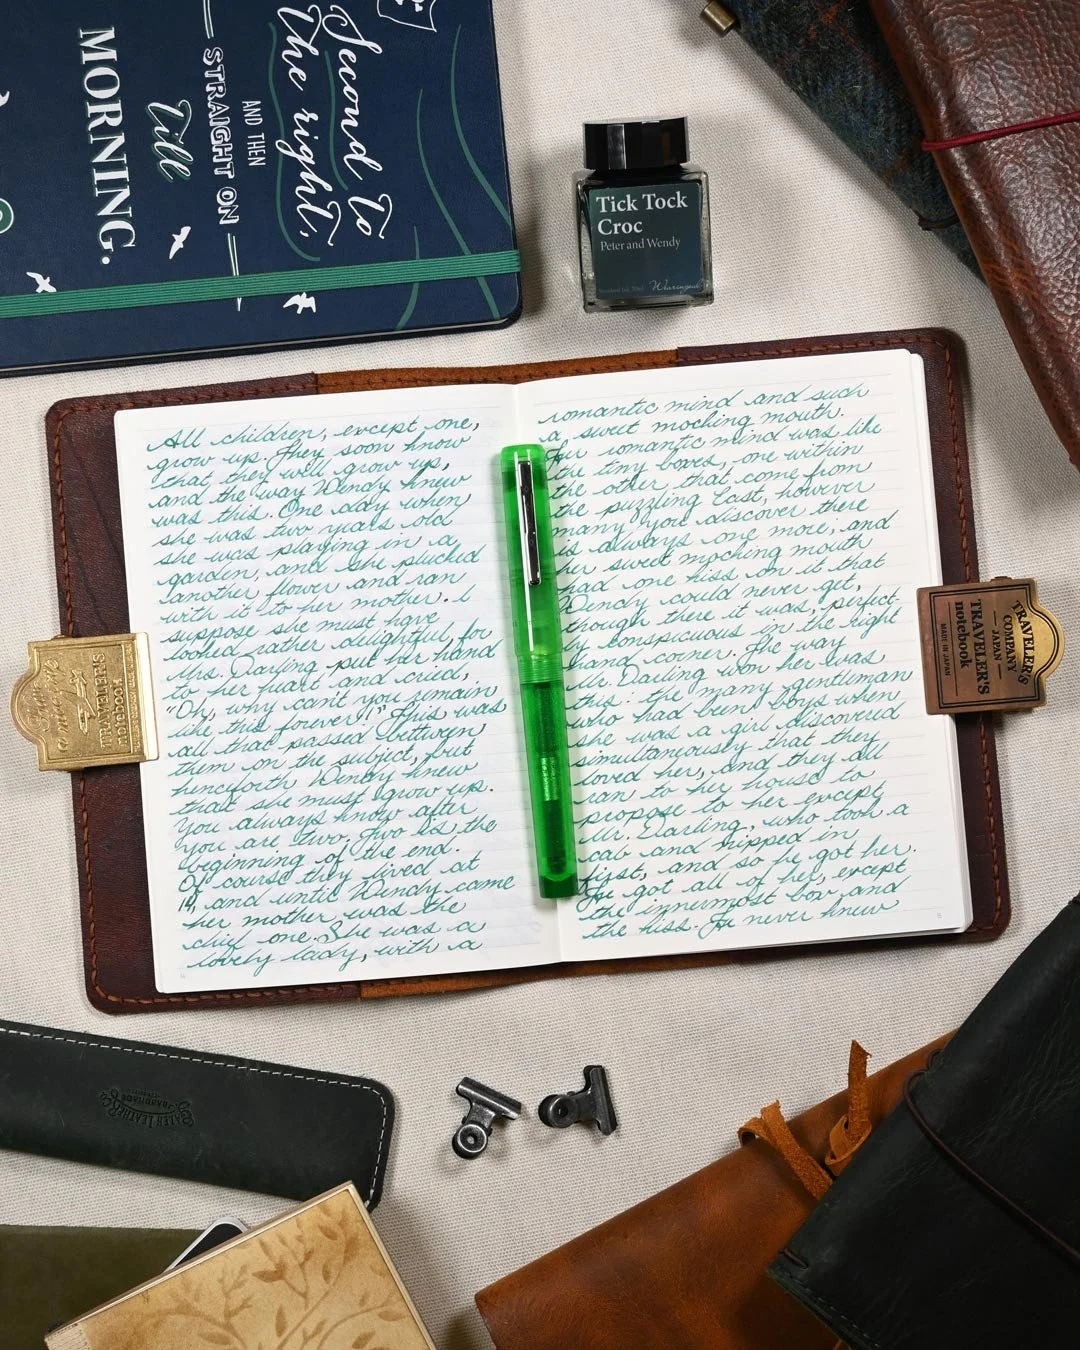 Second to
The right,
AND THEN
STRAIGHT ON
Till
MORNING.
Tick Tock
Croc
Peter and Wendy
All children, except one,
grow up. They soon know
that they will grow up,
and the way Wendy knew
was this. One day when
she was two years old
she was playing in a
garden, and she plucked
another flower and ran
with it to her mother. I
suppose she must have
looked rather delightful, for
Mrs. Darling put her hand
to her heart and cried,
"Oh, why can't you remain
like this forever!" This was
all that passed between
them on the subject, but
henceforth Wendy knew
that she must grow up.
You always know after
you are two. Two is the
beginning of the end.
Of course they lived at
14, and until Wendy came
her mother was the
chief one. She was a
lovely lady, with a
romantic mind and such
a sweet mocking mouth.
Her romantic mind was like
the tiny boxes, one within
the other that come from
the puzzling East, however
many you discover there
is always one more; and
her sweet mocking mouth
had one kiss on it that
Wendy could never get,
though there it was, perfect-
ly conspicuous in the right
hand corner. The way
Mr. Darling won her was
this: the many gentleman
who had been boys when
she was a girl discovered
simultaneously that they
loved her, and they all
ran to her house to
propose to her except
Mr. Darling, who took a
cab and nipped in
first, and so he got her.
He got all of her, except
the innermost box and
the kiss. He never knew
TRAVELER'S
notebook
TRAVELER'S
COMPANY
JAPAN
TRAVELER'S
notebook
MADE IN JAPAN
GALEN LEATHER Co.
HANDMADE